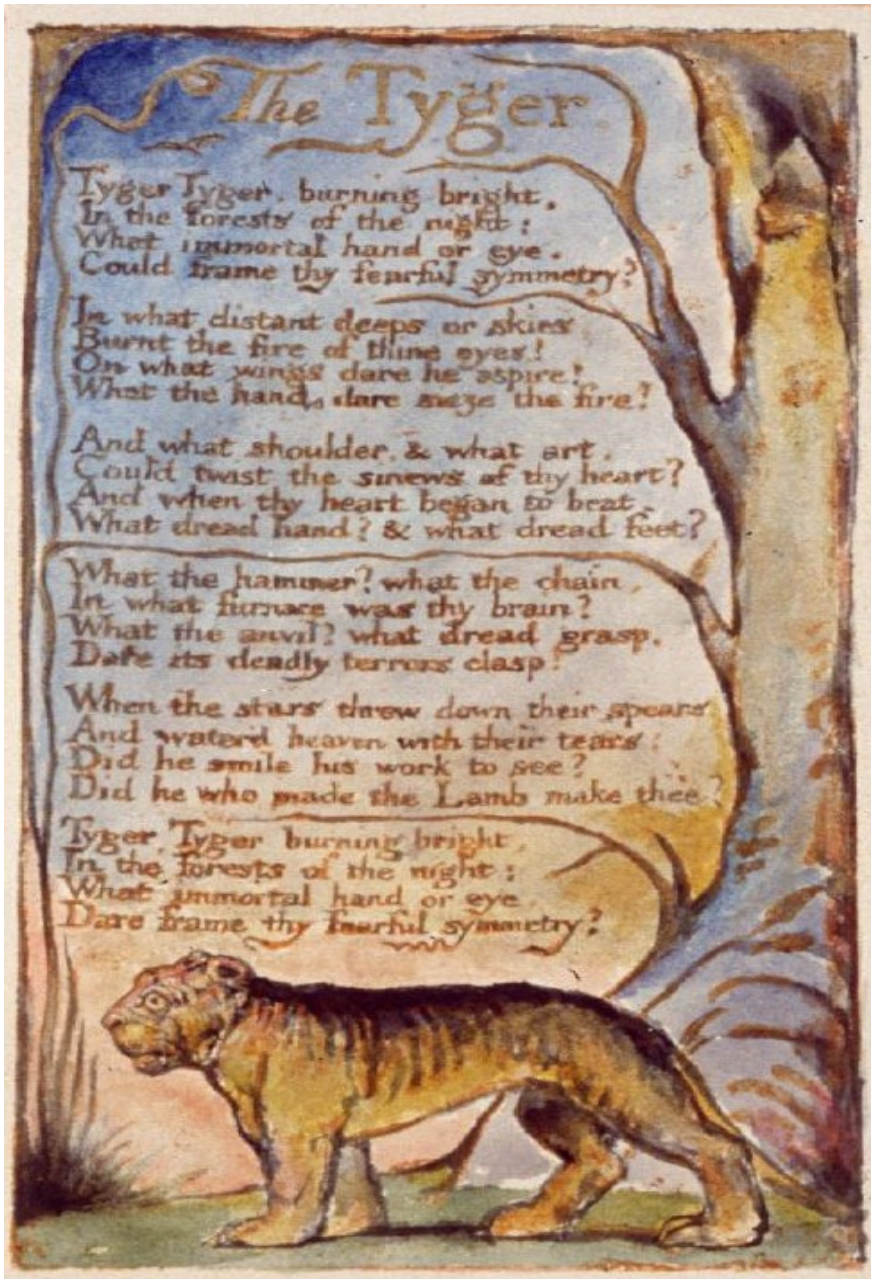 The Tyger.
Tyger Tyger, burning bright,
In the forests of the night:
What immortal hand or eye,
Could frame thy fearful symmetry?
In what distant deeps or skies
Burnt the fire of thine eyes!
On what wings dare he aspire!
What the hand, dare sieze the fire?
And what shoulder, & what art,
Could twist the sinews of thy heart?
And when thy heart began to beat,
What dread hand? & what dread feet?
What the hammer? what the chain,
In what furnace was thy brain?
What the anvil? what dread grasp,
Dare its deadly terrors clasp!
When the stars threw down their spears
And water'd heaven with their tears:
Did he smile his work to see?
Did he who made the Lamb make thee?
Tyger, Tyger burning bright,
In the forests of the night:
What immortal hand or eye,
Dare frame thy fearful symmetry?